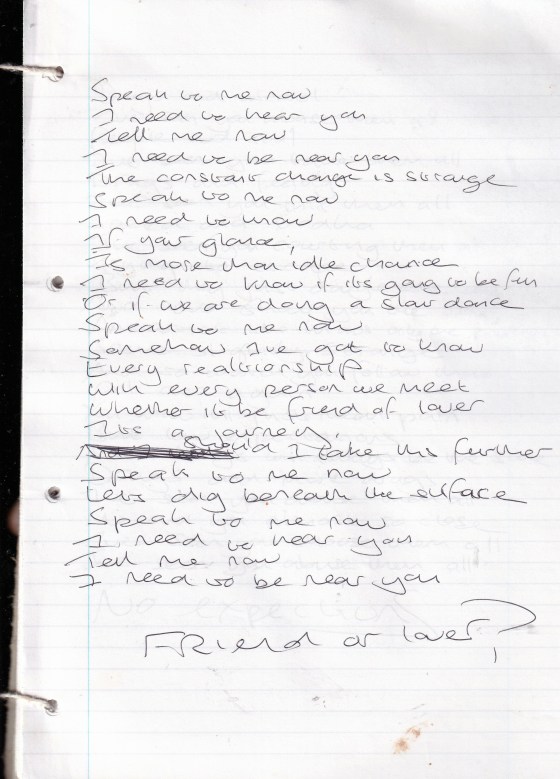 Speak to me now
I need to hear you
Tell me now
I need to be near you
The constant change is strange
Speak to me now
I need to know
If your glance,
Is more than idle chance
I need to know if its going to be fun
Or if we are doing a slow dance
Speak to me now
Somehow I've got to know
Every realtionship
With every person we meet
Whether it be friend of lover
Its a journey,
should I take this further
Speak to me now
Lets dig beneath the surface
Speak to me now
I need to hear you
Tell me now
I need to be near you
Friend or lover?